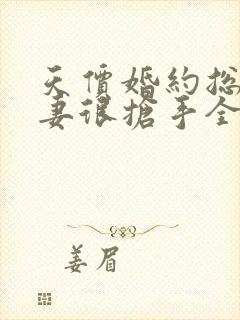 天價婚約総
妻很搶手全
姜眉